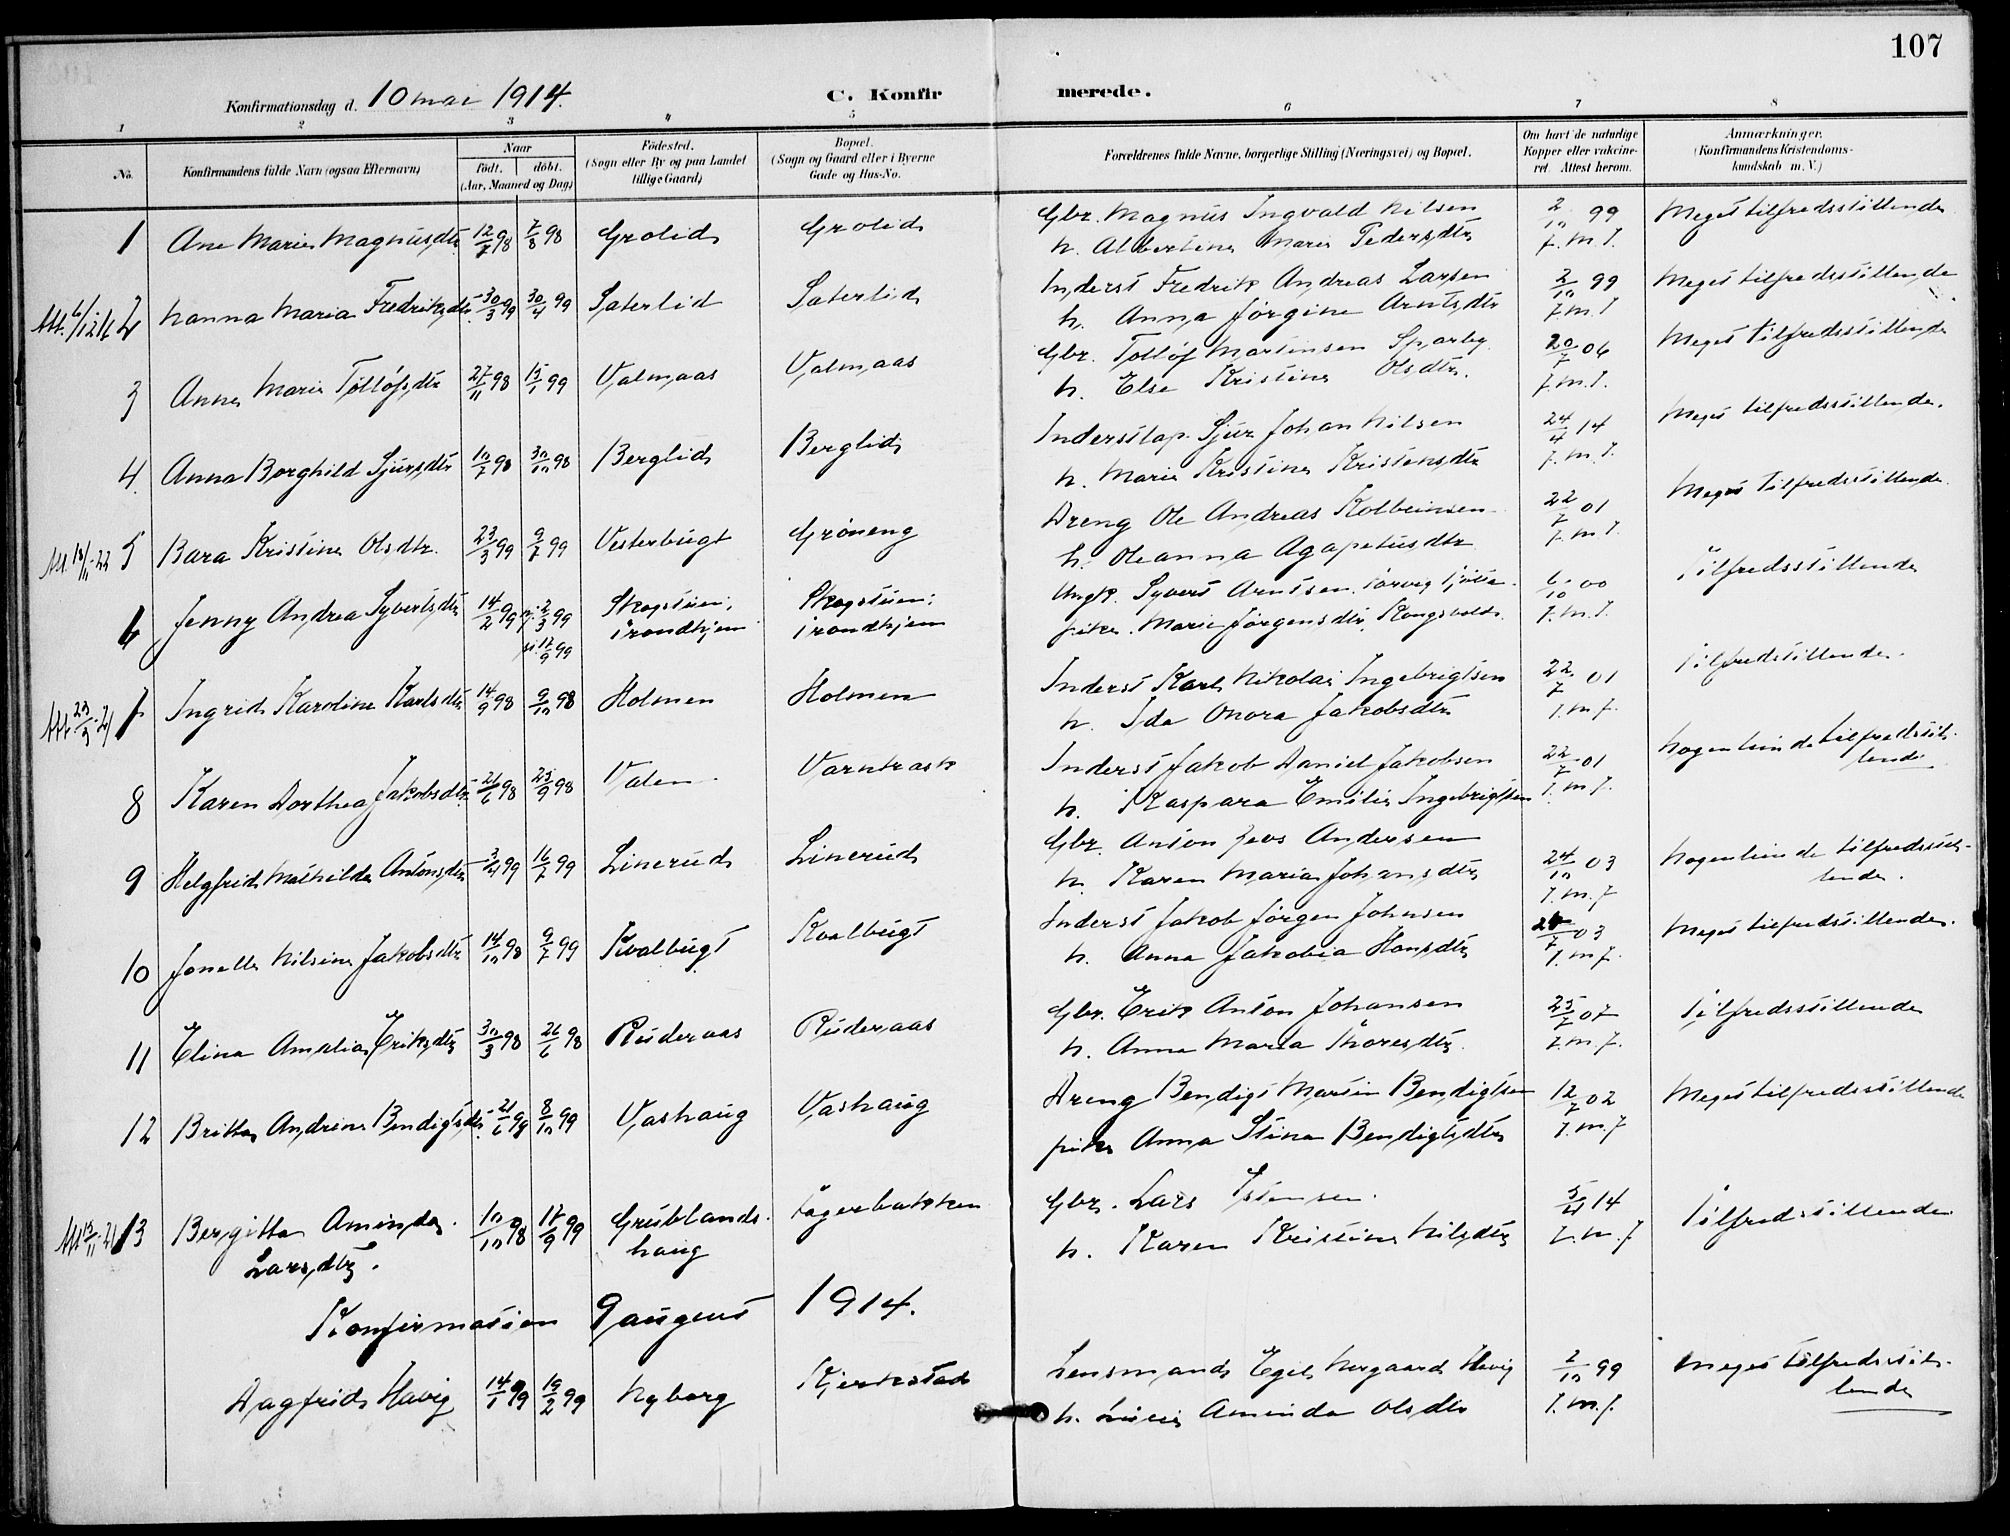 107
Konfirmationsdag d. 10 mai 1914.
C. Konfirmerede.
1 2 3 4 5 6 7 8
No.
Konfirmandens fulde Navn (ogsaa Efternavn)
Naar
født. døbt.
(Aar, Maaned og Dag)
Fødested.
(Sogn eller By og paa Landet
tillige Gaard)
Bopæl.
(Sogn og Gaard eller i Byerne
Gade og Hus-No.
Forældrenes fulde Navne, borgerlige Stilling (Næringsvei) og Bopæl.
Om havt de naturlige
Kopper eller vakcine-
ret. Attest herom.
Anmærkninger.
(Konfirmandens Kristendoms-
kundskab m. V.)
1 Ane Marie Magnusdtr 12/7 98 7/8 98 Grolid Grolid Gbr. Magnus Ingvald Nilsen 2/10 99 Meget tilfredsstillende
h. Albertine Marie Pedersdtr J.M.J.
Att. 6/12 16 2 Hanna Maria Fredriksdtr 30/3 99 30/4 99 Sæterlid Sæterlid Inderst Fredrik Andreas Larsen 2/10 99 Meget tilfredsstillende
h. Anna Jørgine Arntsdtr J.M.J
3 Anne Marie Tølløfsdtr 27/11 98 15/1 99 Valmaas Valmaas Gbr. Tølløf Martinsen Sparby 20/7 06 Meget tilfredsstillende
h. Else Kristine Olsdtr. J.M.J.
4. Anna Borghild Sjursdtr 10/7 98 30/10 98 Berglid Berglid Inderstlap. Sjur Johan Nilsen 24/4 14 Meget tilfredsstillende.
h. Marie Kristine Kristensdtr J.M.J.
Att. 18/11-22 5 Bara Kristine Olsdtr. 23/3 99 9/7 99 Vesterbugt Grøneng Dreng Ole Andreas Kolbeinsen 22/7 01 Meget tilfredsstillende
h. Oleanna Agapetusdtr J.M.J.
6 Jenny Andrea Sybertsdtr 14/2 99 2/3 99 Skogstuen; Skogstuen; Ungk. Sybert Arntsen 6/10 00 Tilfredsstillende
17/9 99 Trondhjem Trondhjem pike. Marie Jørgensdtr, Kongsvold J.M.J.
Att. 23/3-21 7 Ingrid Karoline Karlsdtr 14/9 98 9/10 98 Holmen Holmen Inderst Karl Nikolai Ingebrigtsen 22/7 01 Tilfredsstillende.
h. Ida Onora Jakobsdtr J.M.J.
8 Karen Dorthea Jakobsdtr 26/6 98 25/9 98 Valen Varntrask Inderst Jakob Daniel Jakobsen 22/7 01 Nogenlunde tilfredsstil-
lende
h. Kaspara Emilie Ingebrigtsen J.M.J.
9 Helgfrid Mathilde Antonsdtr 3/4 99 16/7 99 Linerud Linerud Gbr. Anton Jens Andersen 24/10 03 Nogenlunde tilfredsstil-
lende.
h. Karen Maria Johansdtr J.M.J
10 Jonette Nilsine Jakobsdtr 14/10 98 9/7 99 Kvalbugt Kvalbugt Inderst Jakob Jørgen Johnsen 28/7 03 Meget tilfredsstillende.
h. Anna Jakobia Hansdtr J.M.J.
11 Elina Amalia Eriksdtr 30/3 98 26/6 98 Ruderaas Ruderaas Gbr. Erik Anton Johansen 25/7 07 Tilfredsstillende
h. Anna Maria Thoresdtr J.M.J.
12 Britta Andrine Bendigtsdtr 21/6 99 8/10 99 Vashaug Vashaug Dreng Bendigt Martin Bendigtsen 12/7 02 Meget tilfredsstillende
pike Anna Stina Bendigtsdtr J.M.J
Att 13/11-21 13 Bergitta Aminda 10/10 98 17/9 99 Grublands- Fagerbakken Gbr. Lars Istensen. 5/4 14 Tilfredsstillende
Larsdtr. haug h. Karen Kristine Nilsdtr J.M.J
Konfirmasion 9 august 1914.
Dagfrid Havig 14/1 99 19/2 99 Nyborg Kjerkstad Lensmand Egil Norgaard Havig 2/10 99 Meget tilfredsstil-
lende
h. Lucie Aminda Olsdtr J.M.J.